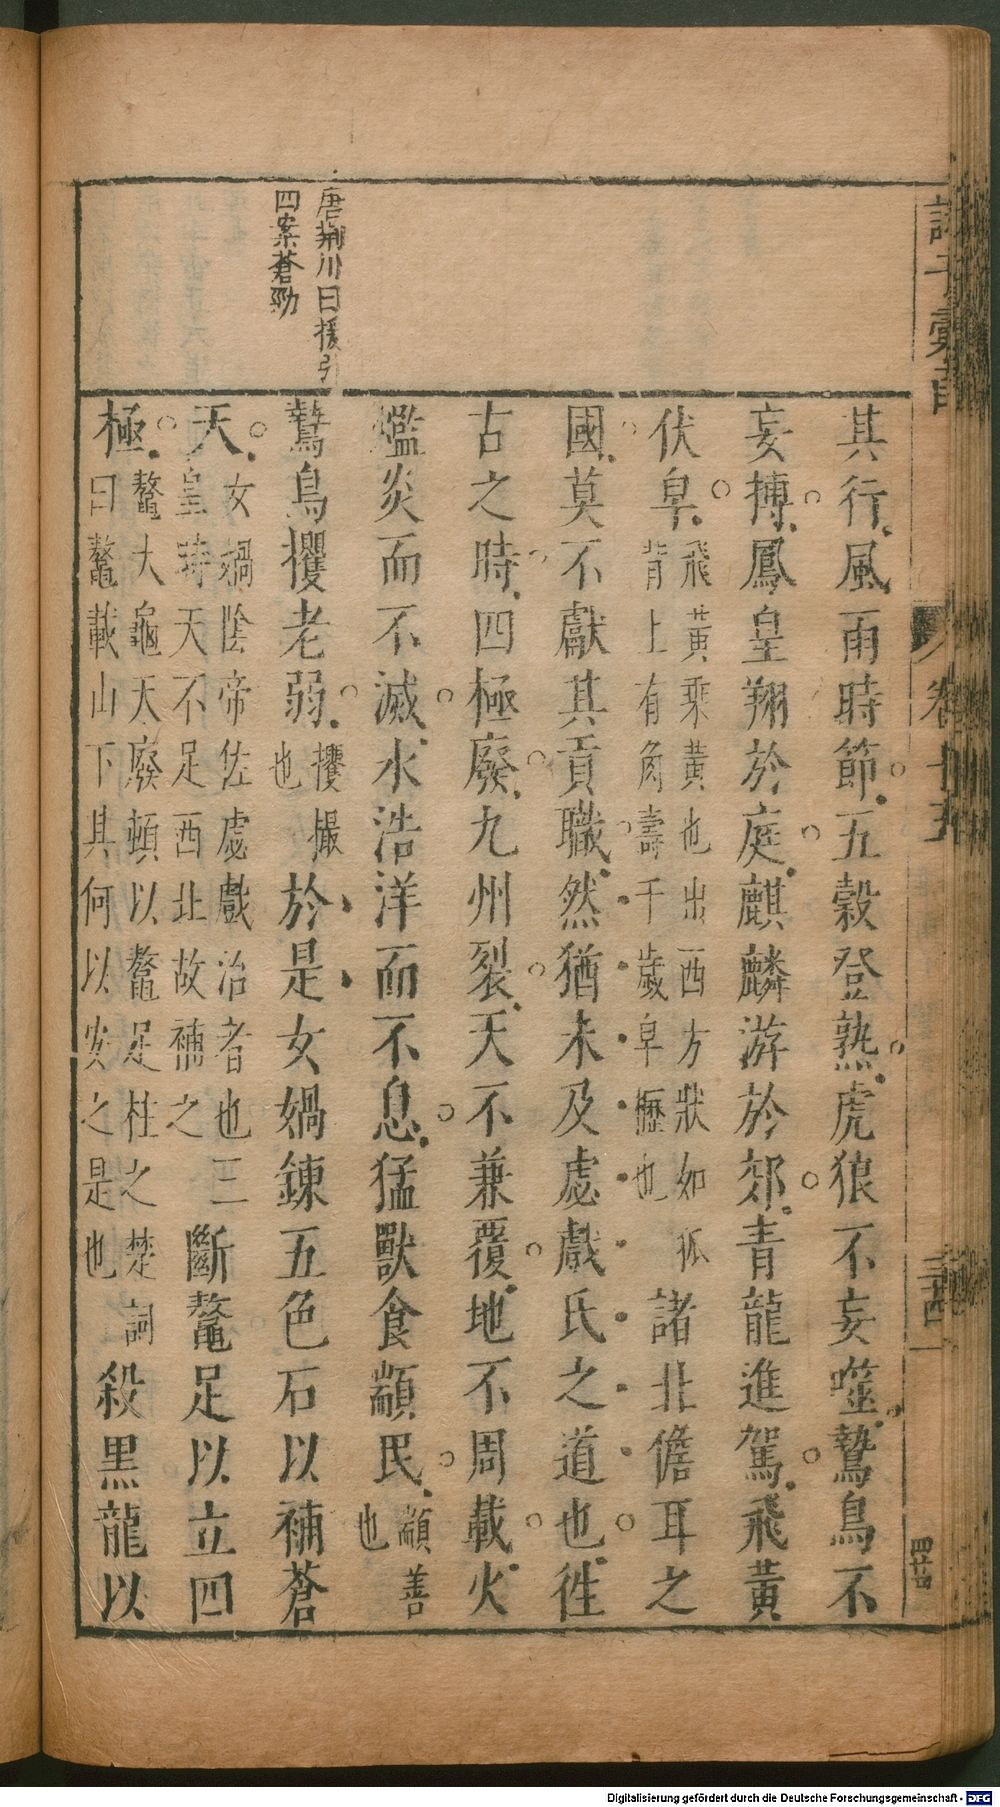 其行風雨時節五穀登熟虎狼不妄噬鷙鳥不
妄搏鳳皇翔於庭麒麟游於郊青龍進駕飛黃
伏皁飛黃乘黃也出西方狀如狐背上有角壽千歲皁櫪也諸北儋耳之
國莫不獻其貢職然猶未及虙戲氏之道也徃
古之時四極廢九州裂天不兼覆地不周載火
爁炎而不滅水浩洋而不息猛獸食顓民顓善也
鷙鳥攫老弱攫撮也於是女媧鍊五色石以補蒼
天女媧陰帝佐虙戲治者也三皇時天不足西北故補之斷鼇足以立四
極鼇大龜天廢頓以鼇足柱之楚詞曰鼇載山下其何以安之是也殺黑龍以
唐荊川曰援引
四案蒼勁
卷十五
三十四
Digitalisierung gefördert durch die Deutsche Forschungsgemeinschaft - DFG